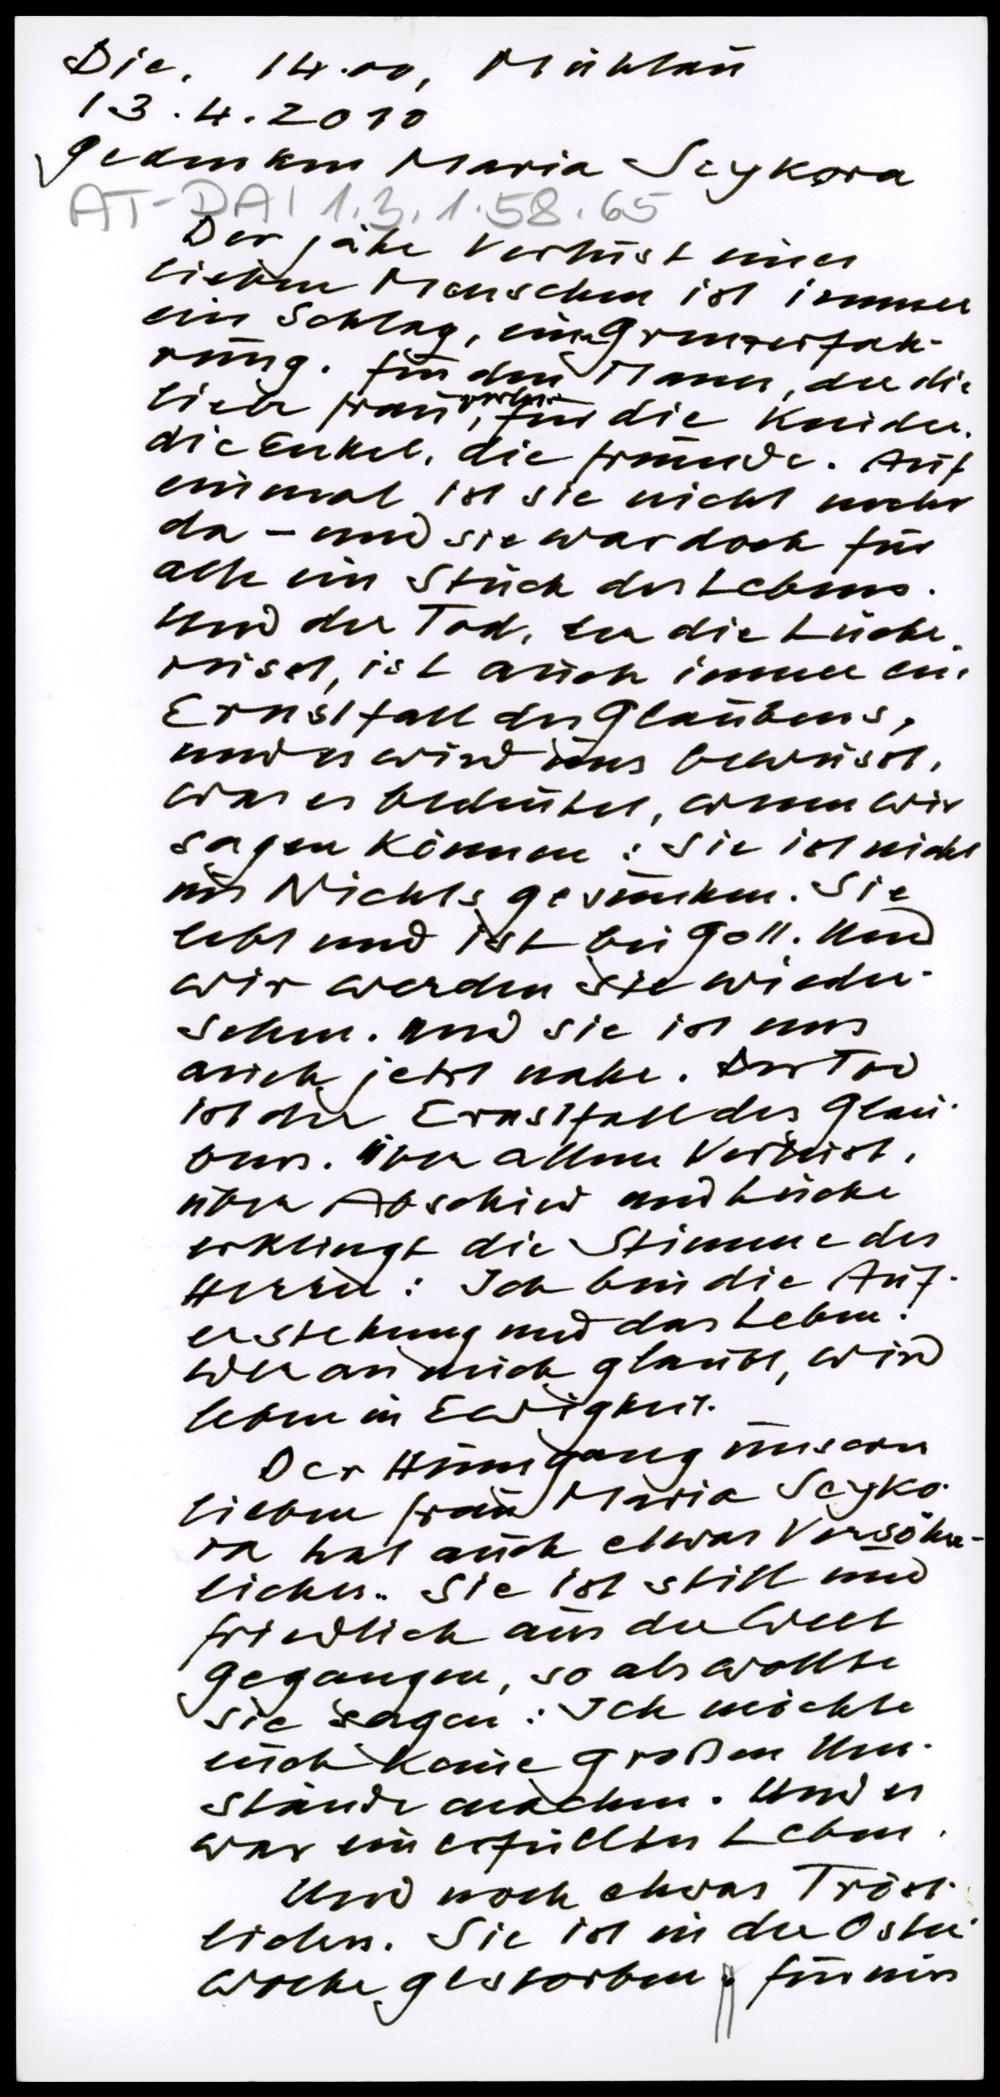 Die. 14.00, Mühlau
13.4.2010
Gedenken Maria Seykora
AT-DAI 1.3.1.58.65
Der jähe Verlust eines
lieben Menschen ist immer
ein Schlag, eine Grenzerfah-
rung. Für den Mann, der die
liebe Frau verlor, für die Kinder.
die Enkel, die Freunde. Auf
einmal ist sie nicht mehr
da – und sie war doch für
alle ein Stück des Lebens.
Und der Tod, der die Lücke
reisst, ist auch immer ein
Ernstfall des Glaubens,
und es wird uns bewusst,
was es bedeutet, wenn wir
sagen können: Sie ist nicht
ins Nichts gesunken. Sie
lebt und ist bei Gott. Und
wir werden sie wieder-
sehen. Und sie ist uns
auch jetzt nahe. Der Tod
ist der Ernstfall des Glau-
bens. Über allem Verlust,
über Abschied und Lücke
erklingt die Stimme des
Herrn: Ich bin die Auf-
erstehung und das Leben.
Wer an mich glaubt, wird
leben in Ewigkeit.
Der Heimgang unserer
lieben Frau Maria Seyko-
ra hat auch etwas Versöhn-
liches. Sie ist still und
friedlich aus der Welt
gegangen, so als wollte
sie sagen: Ich möchte
euch keine großen Um-
stände machen. Und es
war ein erfülltes Leben.
Und noch etwas Tröst-
liches. Sie ist in der Oster-
woche gestorben. für uns